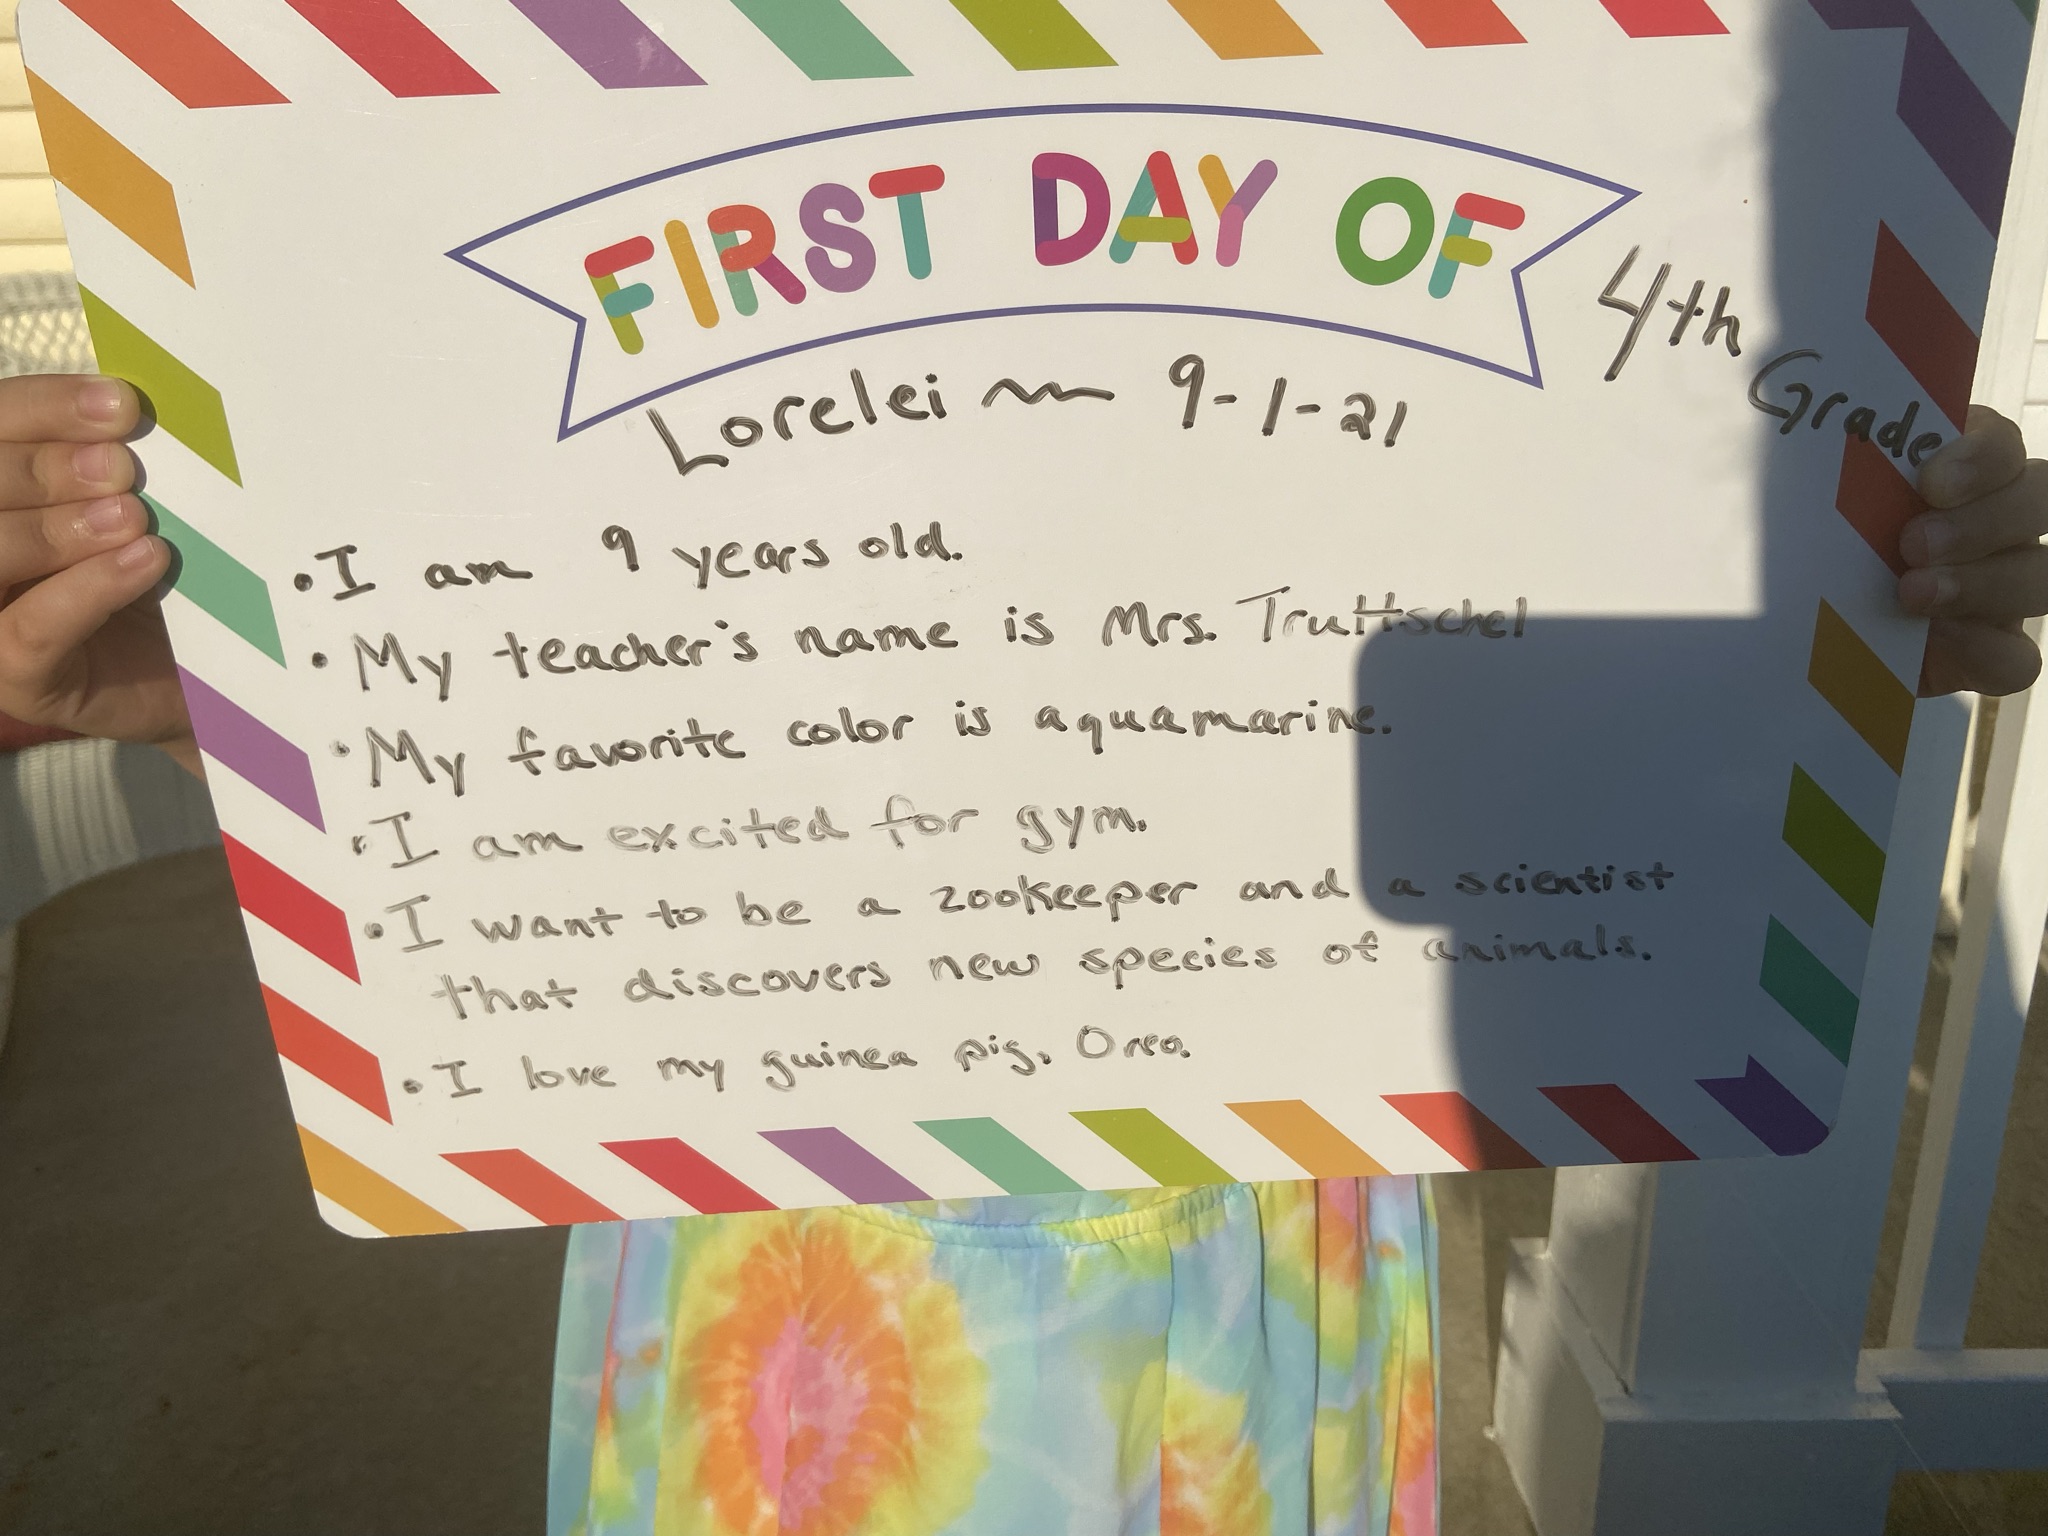 FIRST DAY OF
4th Grade
Lorelei ~ 9-1-21
• I am 9 years old.
• My teacher's name is Mrs. Truttschel
• My favorite color is aquamarine.
• I am excited for gym.
• I want to be a zookeeper and a scientist
that discovers new species of animals.
• I love my guinea pig, Oreo.